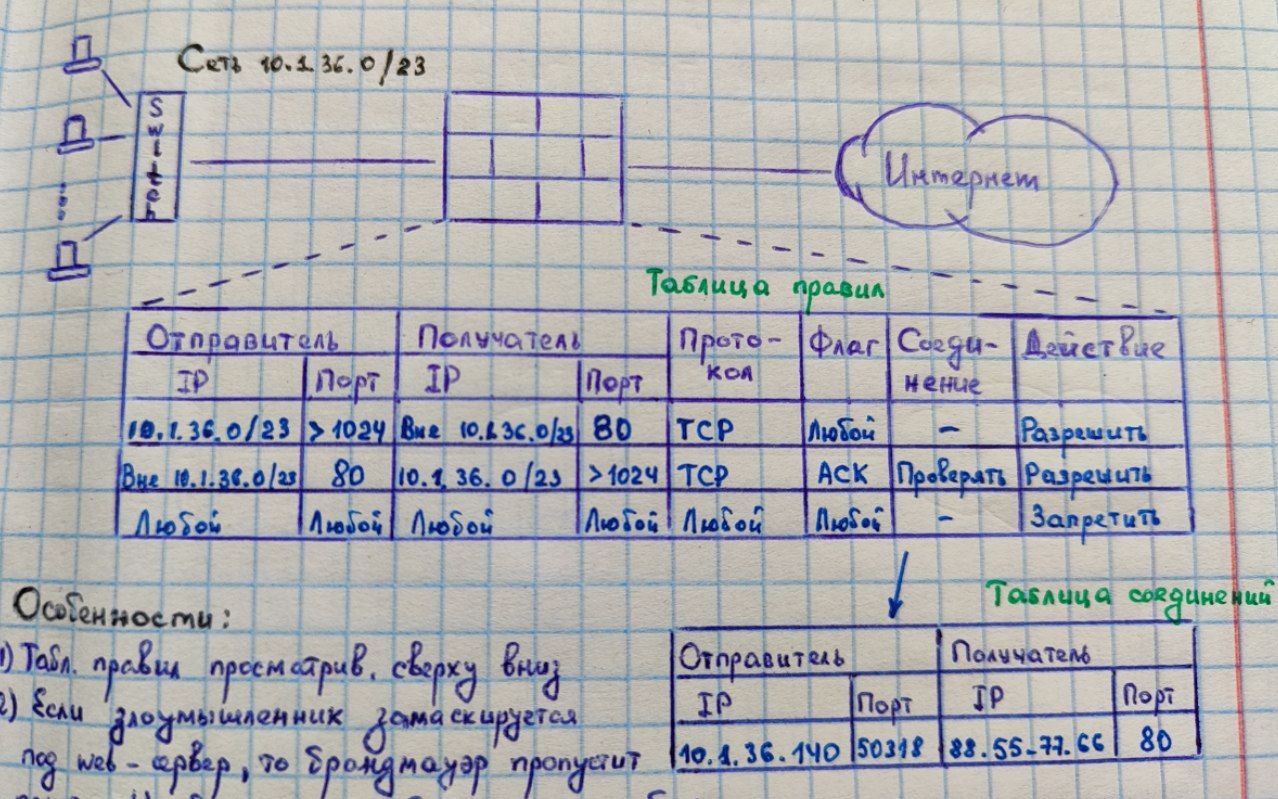 Сеть 10.1.36.0/23
Switch
Интернет
Таблица правил
Отправитель Получатель Прото-кол Флаг Соеди-нение Действие
IP Порт IP Порт
10.1.36.0/23 >1024 Вне 10.1.36.0/23 80 TCP Любой - Разрешить
Вне 10.1.36.0/23 80 10.1.36.0/23 >1024 TCP ACK Проверять Разрешить
Любой Любой Любой Любой Любой Любой - Запретить
Таблица соединений
Отправитель Получатель
IP Порт IP Порт
10.1.36.140 50318 88.55.77.66 80
Особенности:
1) Табл. правил просматрив. сверху вниз
2) Если злоумышленник замаскируется
под web-сервер, то брандмауэр пропустит